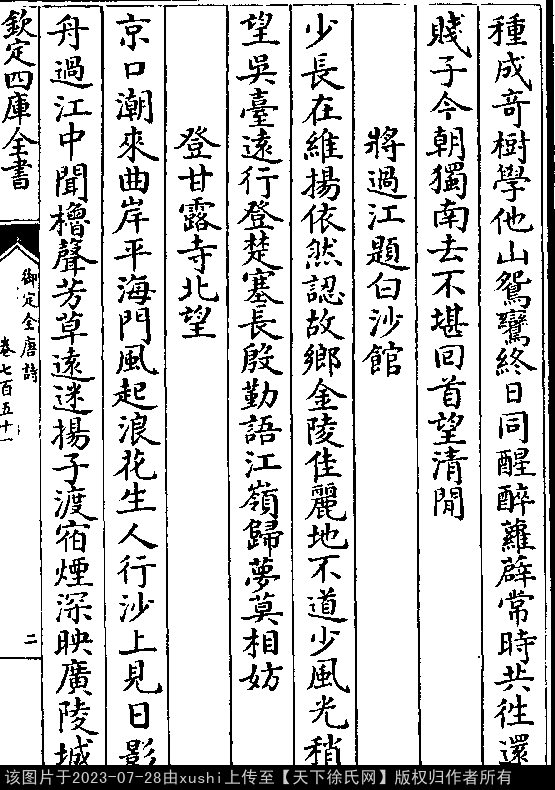 種成奇樹學他山鴛鸞終日同醒醉蘿薜常時共徃還
賤子今朝獨南去不堪回首望清閒
將過江題白沙館
少長在維揚依然認故鄉金陵佳麗地不道少風光稍
望吳臺遠行登楚塞長殷勤語江嶺歸夢莫相妨
登甘露寺北望
京口潮來曲岸平海門風起浪花生人行沙上見日影
舟過江中聞櫓聲芳草遠迷揚子渡宿煙深映廣陵城
欽定四庫全書
御定全唐詩
卷七百五十一
二
该图片于2023-07-28由xushi上传至【天下徐氏网】版权归作者所有